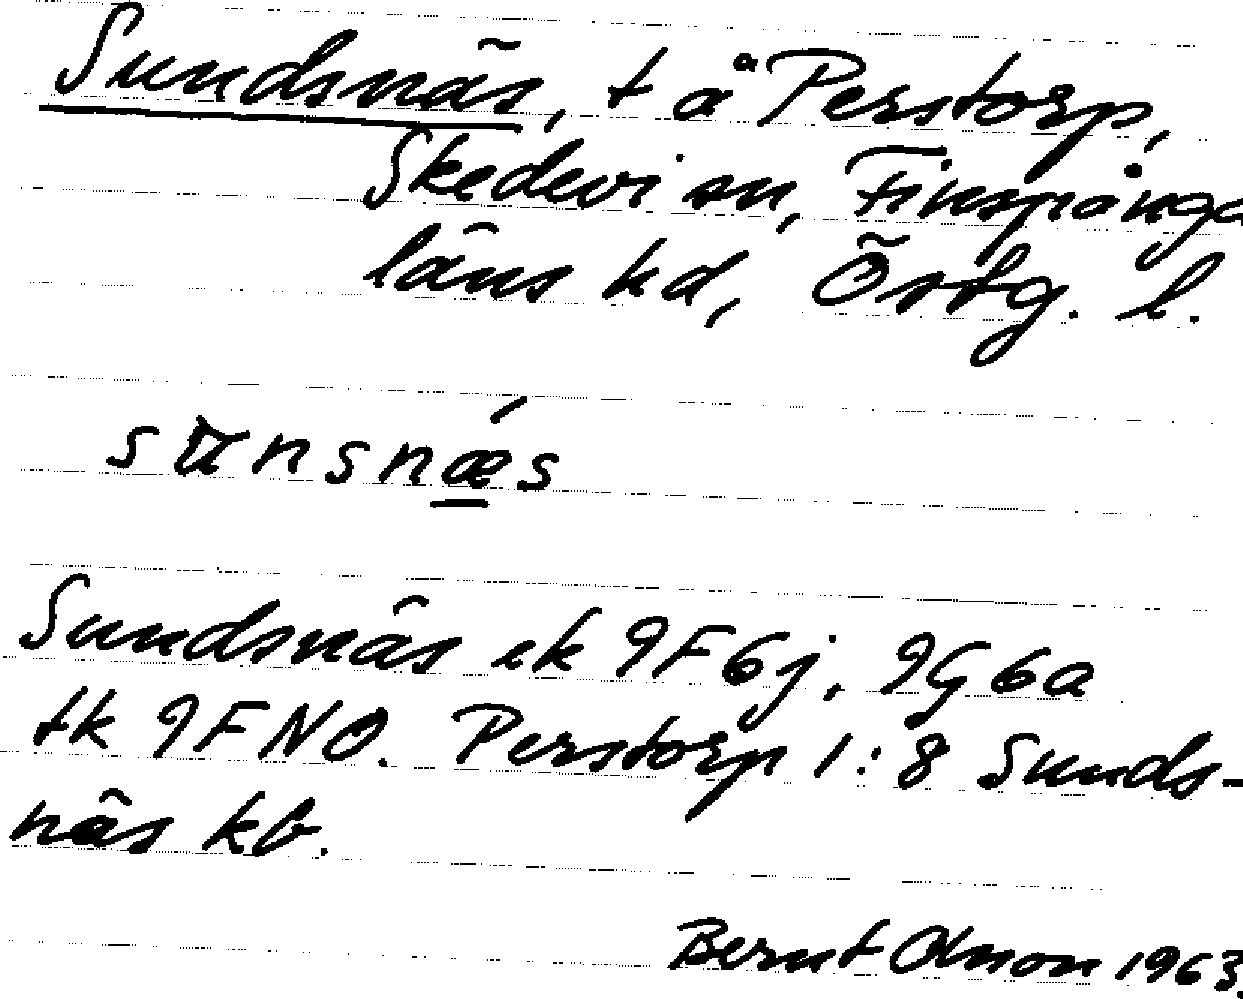 Sundsnäs, t å Perstorp,
Skedevi sn, Finspånga
läns hd, Östg. l.
sunsnǽs
Sundsnäs ek 9F6j, 9G6a
tk 9FNO. Perstorp 1:8 Sunds-
näs kb.
Bernt Olsson 1963.